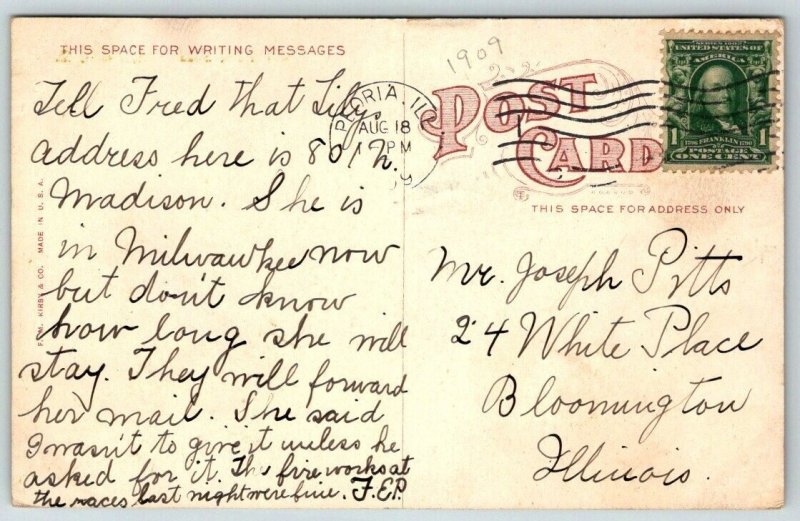 THIS SPACE FOR WRITING MESSAGES
Tell Fred that Lily
address here is 801 N.
Madison. She is
in Milwaukee now
but don't know
how long she will
stay. They will forward
her mail. She said
I wasn't to give it unless he
asked for it. The fireworks at
the races last night were fine. F.E.P.
F.M. KIRBY & CO. MADE IN U.S.A.
1909
PEORIA, ILL.
AUG 18
PM
POST
CARD
THIS SPACE FOR ADDRESS ONLY
UNITED STATES OF
AMERICA
1 FRANKLIN 1
POSTAGE
ONE CENT
Mr. Joseph Pitts
24 White Place
Bloomington
Illinois.